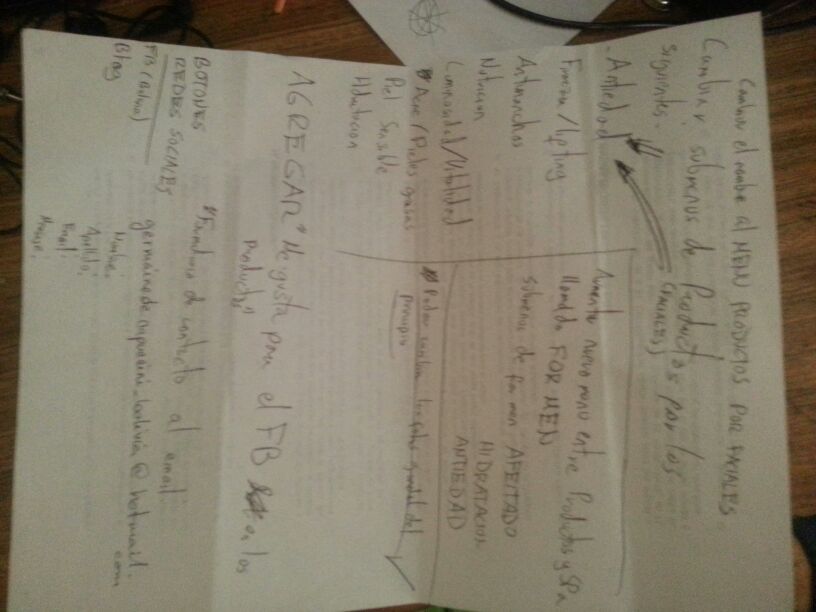 Cambiar el nombre al MENU PRODUCTOS POR FACIALES
Cambiar submenus de Productos por los
(FACIALES)
siguientes.
- Antiedad
Firmeza/lifting
Antimanchas
Nutricion
Luminosidad/Vitalidad
Acne/Pieles grasas
Piel Sensible
Hidratacion
Aumentar nuevo menu entre Productos y SPa
llamado FOR MEN
submenus de for men: AFEITADO
HIDRATACION
ANTIEDAD
Poder cambiar las fotos grandes del
principio
AGREGAR "Me gusta para el FB en los
Productos"
BOTONES
REDES SOCIALES
FB (Bolivia)
Blog
"Formulario de contacto al email:
germainede capuccini_bolivia@hotmail.
com
Nombre:
Apellido:
Email:
Mensaje: